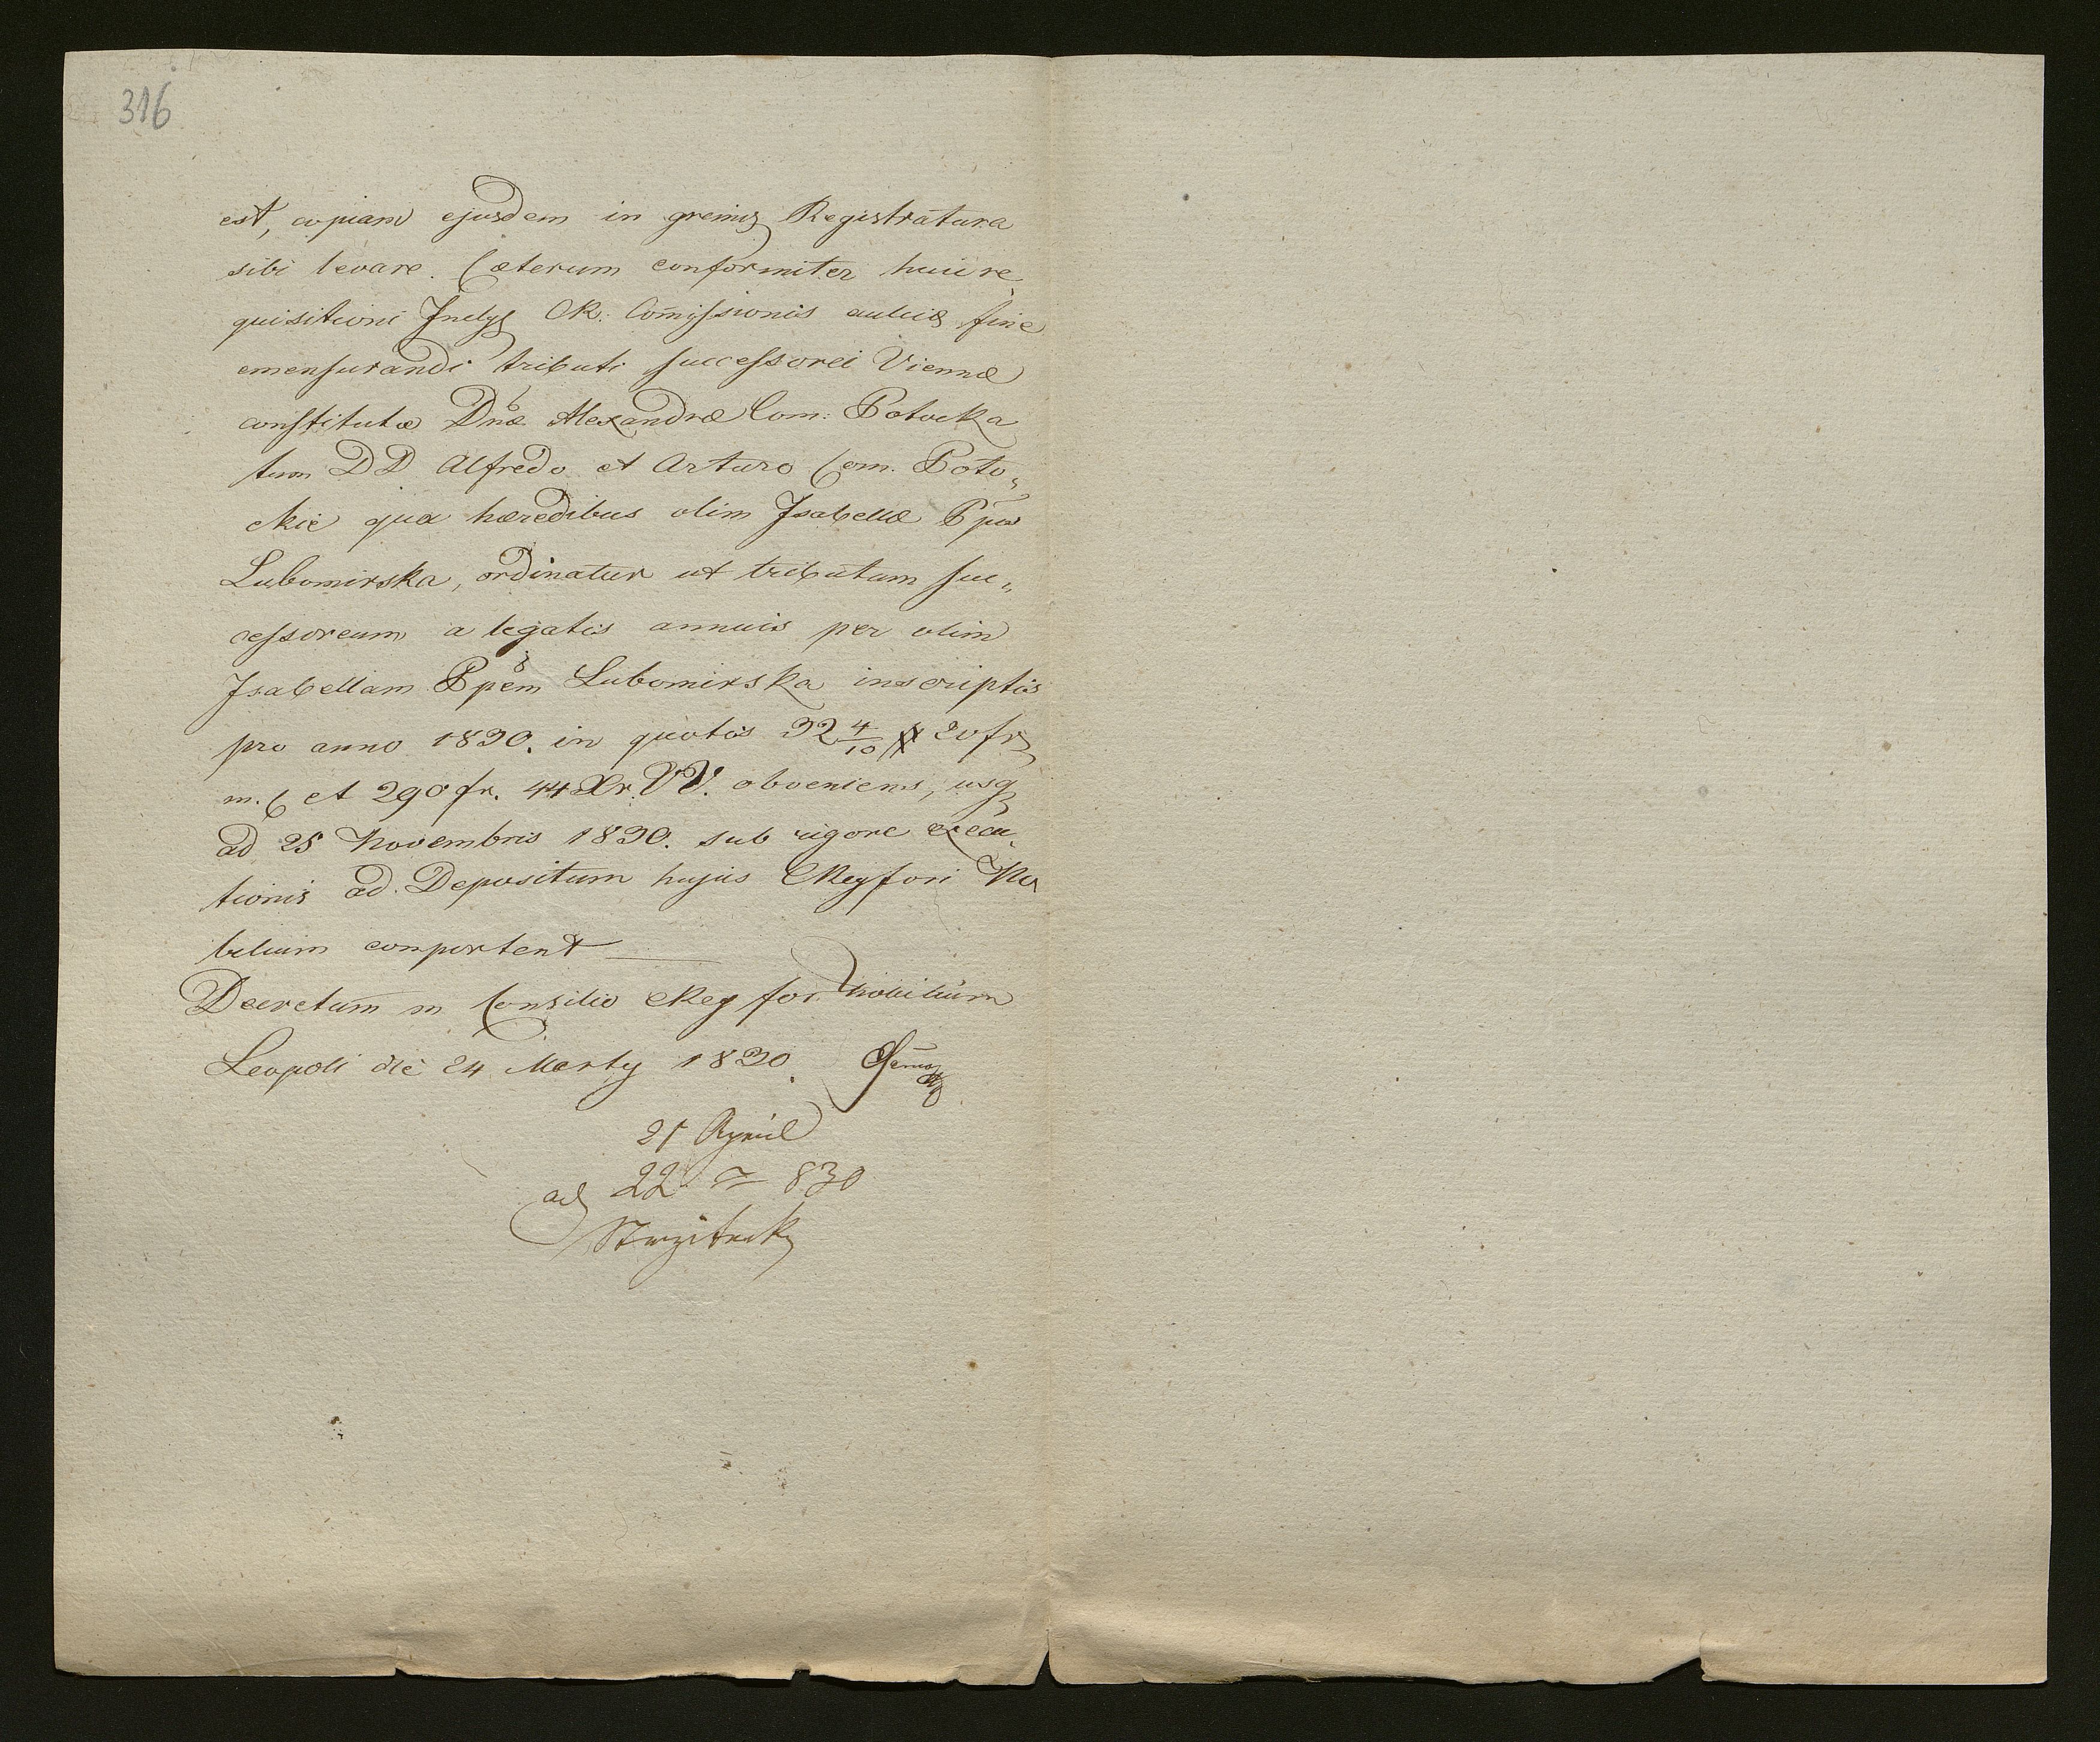 316
est, copiam ejusdem in gremio Registratura
sibi levare. Cæterum conformiter huic re„
quisitioni Inclyt CR: Comissionis aulicæ fine
emensurandi tributi successorei Viennæ
constitutæ Dnæ Alexandræ Com: Potocka
tum DD Alfredo et Arturo Com. Poto„
ckie qua hæredibus olim Isabellæ Ppis
Lubomirska, ordinatur ut tributum suc„
cessoreum a legatis annuis per olim
Isabellam Ppem Lubomirska inscriptis
pro anno 1830. in quotis 32 4/10 # 20 fr
m. C et 290 fr. 44 Xr. VV. obveniens, usq
ad 25 Novembris 1830. sub rigore execu„
tionis ad Depositum hujus CReg fori No
bilium comportent
Decretum in Consilio CReg fori Nobilium
Leopoli die 24 Marty 1830.
21 April
ad 22 830